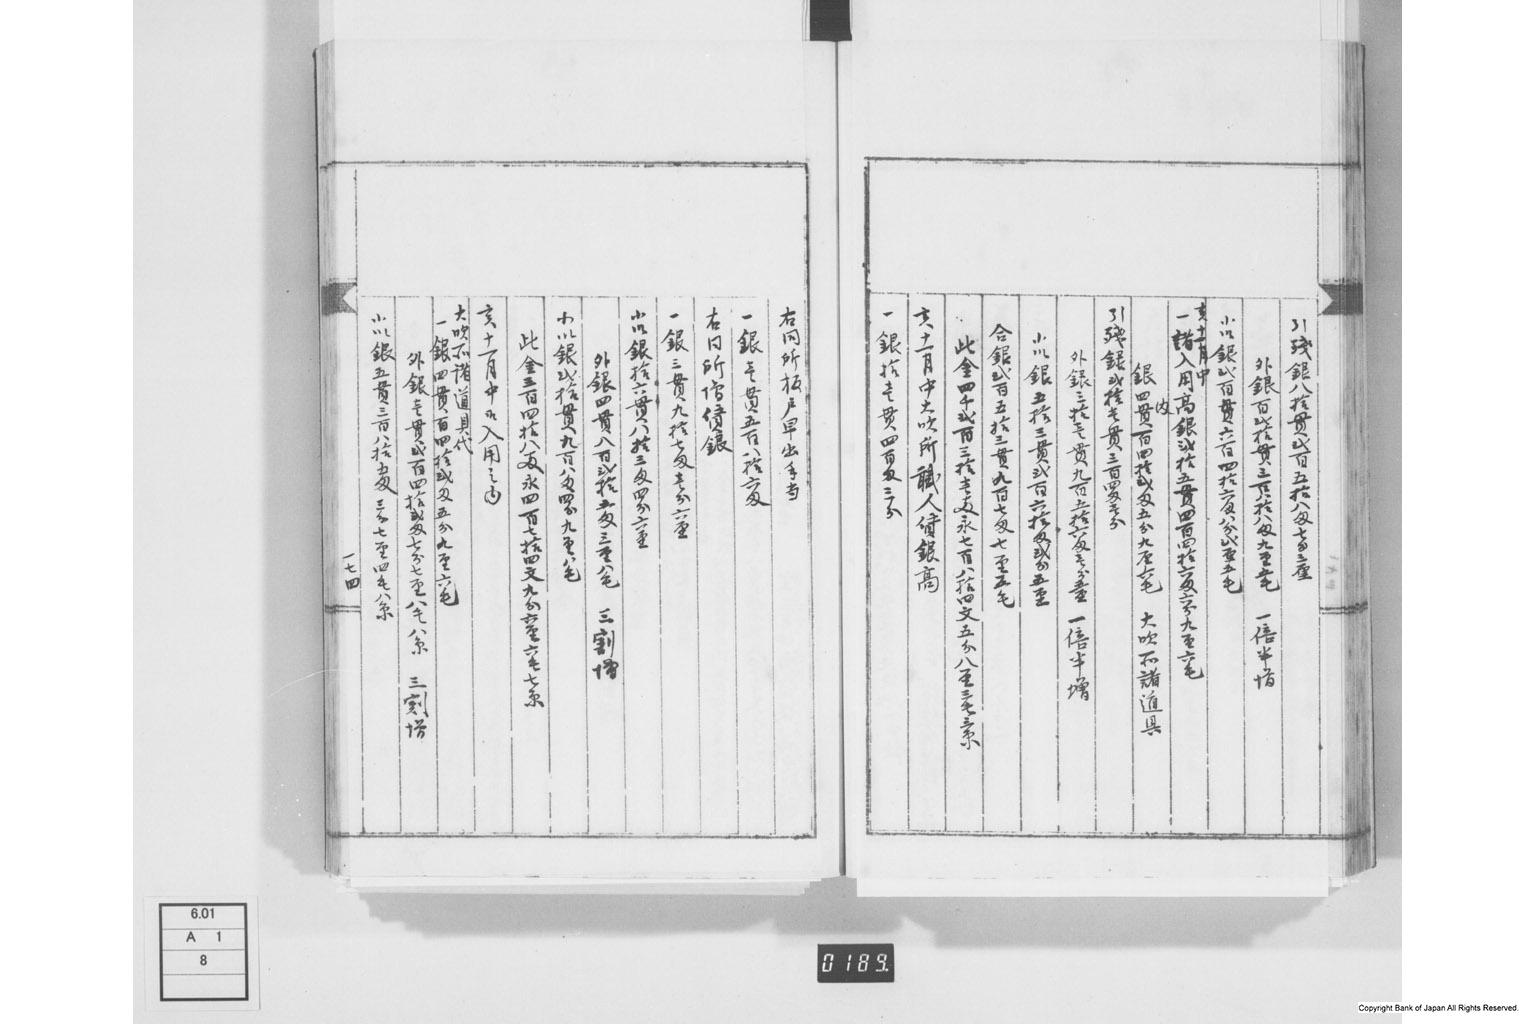 引残銀八拾貫弐百五拾八匁七分三厘
外銀百弐拾貫三百八拾八匁九厘五毛 一倍半増
小以銀弐百貫六百四拾六匁八分弐厘五毛
亥十一月中
一諸入用高銀弐拾五貫四百四拾六匁六分九厘六毛
内
銀四貫百四拾弐匁五分九厘六毛 大吹所諸道具
引残銀弐拾壱貫三百四匁壱分
外銀三拾壱貫九百五拾六匁壱分五厘 一倍半増
小以銀五拾三貫弐百六拾匁弐分五厘
合銀弐百五拾三貫九百七匁七厘五毛
此金四千弐百三拾壱両永七百八拾四文五分八厘三毛三糸
亥十一月中大吹所職人債銀高
一銀拾壱貫四百匁三分
右同所板戸早出手当
一銀壱貫五百八拾六匁
右同所増債銀
一銀三貫九拾七匁壱分六厘
小以銀拾六貫八拾三匁四分六厘
外銀四貫八百弐拾五匁三厘八毛 三割増
小以銀弐拾貫九百八匁四分九厘八毛
此金三百四拾八両永四百七拾四文九分六厘六毛七糸
亥十一月中入用之内
大吹所諸道具代
一銀四貫百四拾弐匁五分九厘六毛
外銀壱貫弐百四拾弐匁七分七厘八毛八糸 三割増
小以銀五貫三百八拾五匁三分七厘四毛八糸
一七四
6.01
A 1
8
0189.
Copyright Bank of Japan All Rights Reserved.